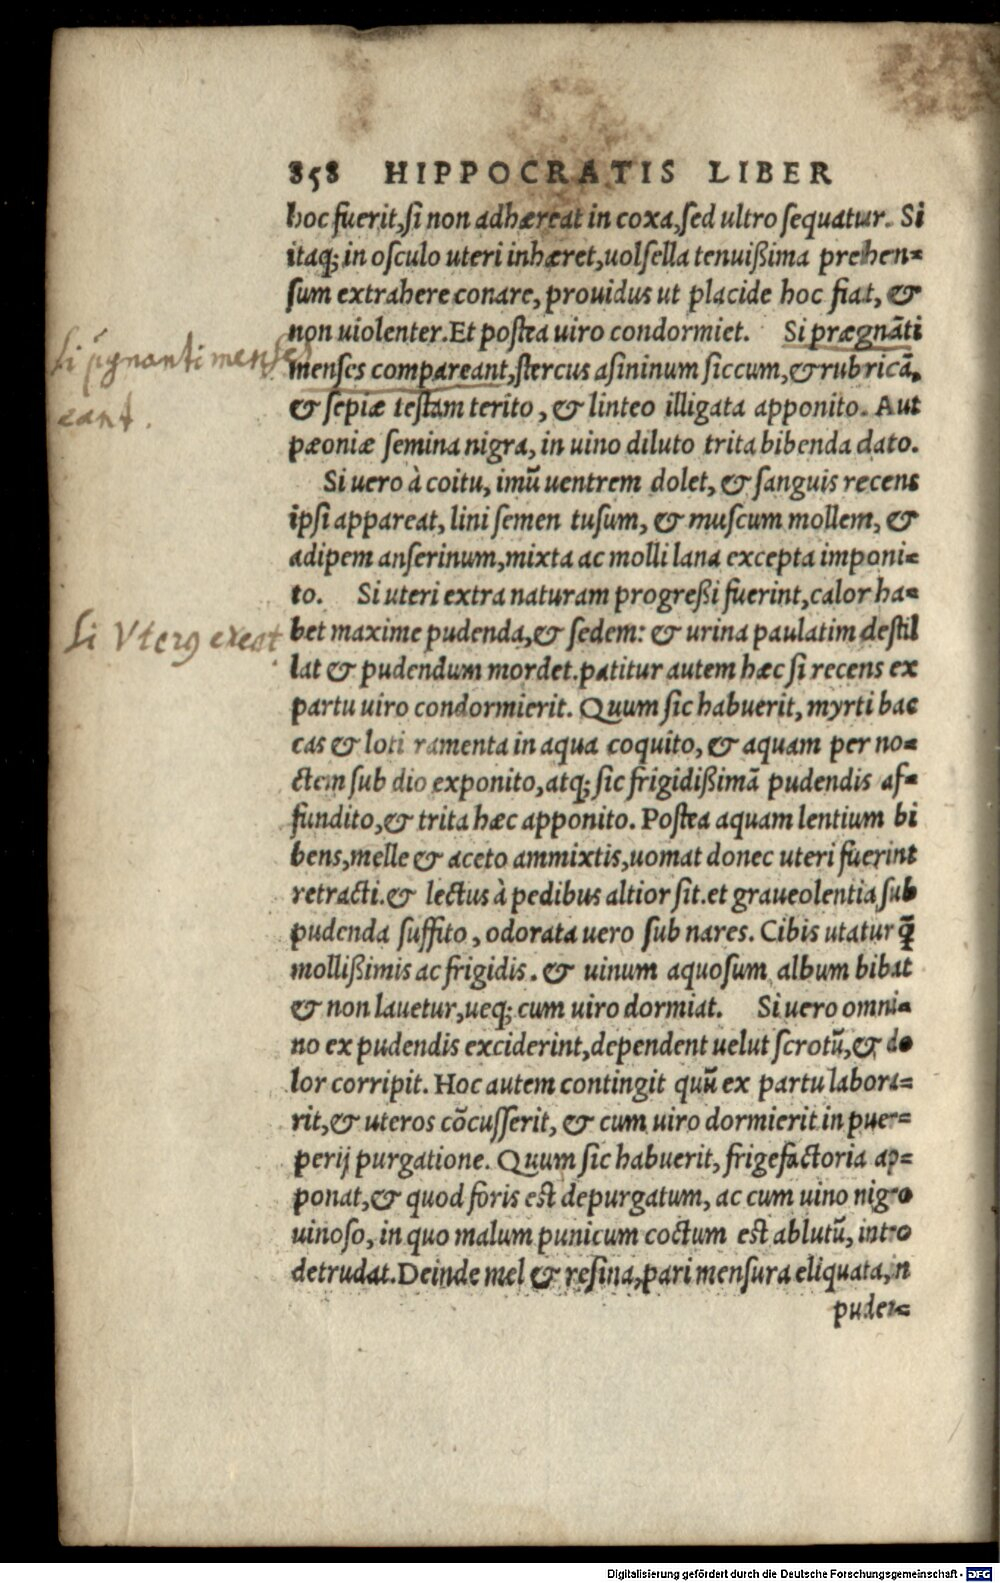 858 HIPPOCRATIS LIBER
hoc fuerit, si non adhæreat in coxa, sed ultro sequatur. Si
itaq; in osculo uteri inhæret, uolsella tenuißima prehen-
sum extrahere conare, prouidus ut placide hoc fiat, &
non uiolenter. Et postea uiro condormiet. Si prægnãti
menses compareant, stercus asininum siccum, & rubricã,
& sepiæ testam terito, & linteo illigata apponito. Aut
pæoniæ semina nigra, in uino diluto trita bibenda dato.
Si p̃gnanti menses
eant.
Si uero à coitu, imũ uentrem dolet, & sanguis recens
ipsi appareat, lini semen tusum, & muscum mollem, &
adipem anserinum, mixta ac molli lana excepta imponi-
to. Si uteri extra naturam progreßi fuerint, calor ha-
bet maxime pudenda, & sedem: & urina paulatim destil
lat & pudendum mordet. patitur autem hæc si recens ex
partu uiro condormierit. Quum sic habuerit, myrti bac
cas & loti ramenta in aqua coquito, & aquam per no-
ctem sub dio exponito, atq; sic frigidißimã pudendis af-
fundito, & trita hæc apponito. Postea aquam lentium bi
bens, melle & aceto ammixtis, uomat donec uteri fuerint
retracti. & lectus à pedibus altior sit. et graueolentia sub
pudenda suffito, odorata uero sub nares. Cibis utatur q̃
mollißimis ac frigidis. & uinum aquosum album bibat
& non lauetur, ueq; cum uiro dormiat. Si uero omni-
no ex pudendis exciderint, dependent uelut scrotũ, & do
lor corripit. Hoc autem contingit quũ ex partu labora-
rit, & uteros cõcusserit, & cum uiro dormierit in puer-
perij purgatione. Quum sic habuerit, frigefactoria ap-
ponat, & quod foris est depurgatum, ac cum uino nigro
uinoso, in quo malum punicum coctum est ablutũ, intro
detrudat. Deinde mel & resina, pari mensura eliquata, in
puden-
Si Vterꝰ exeat
Digitalisierung gefördert durch die Deutsche Forschungsgemeinschaft - DFG